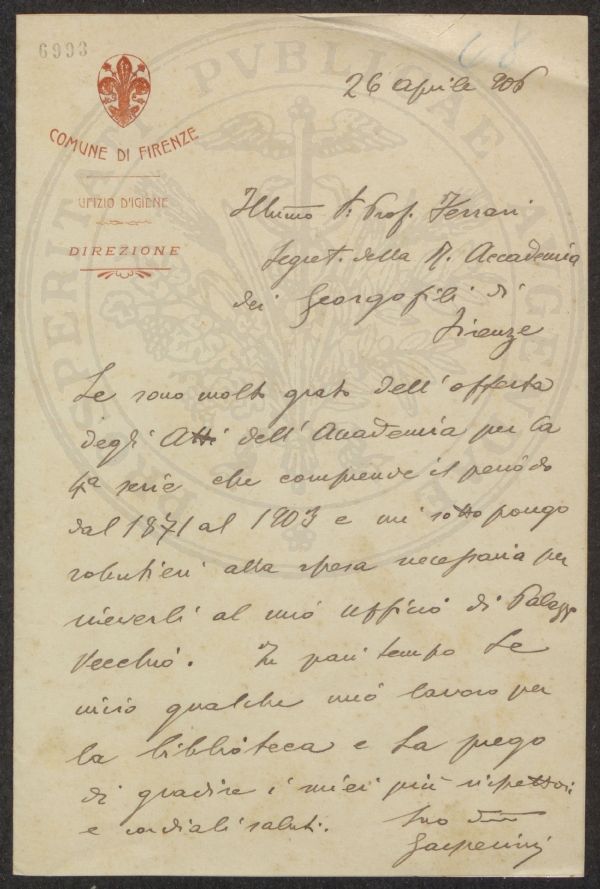 6993
68
26 aprile 906
COMUNE DI FIRENZE
UFIZIO D'IGIENE
DIREZIONE
PROSPERITATI PVBLICAE AVGENDAE
Illumo Sr. Prof. Ferrari
Segret. della R. Accademia
dei Georgofili di
Firenze
Le sono molto grato dell'offerta
degli Atti dell'Accademia per la
4a serie che comprende il periodo
dal 1871 al 1903 e mi sottopongo
volentieri alla spesa necessaria per
riceverli al mio ufficio di Palazzo
Vecchio. In pari tempo Le
invio qualche mio lavoro per
la biblioteca e La prego
di gradire i miei più rispettosi
e cordiali saluti. Suo
Gasperini